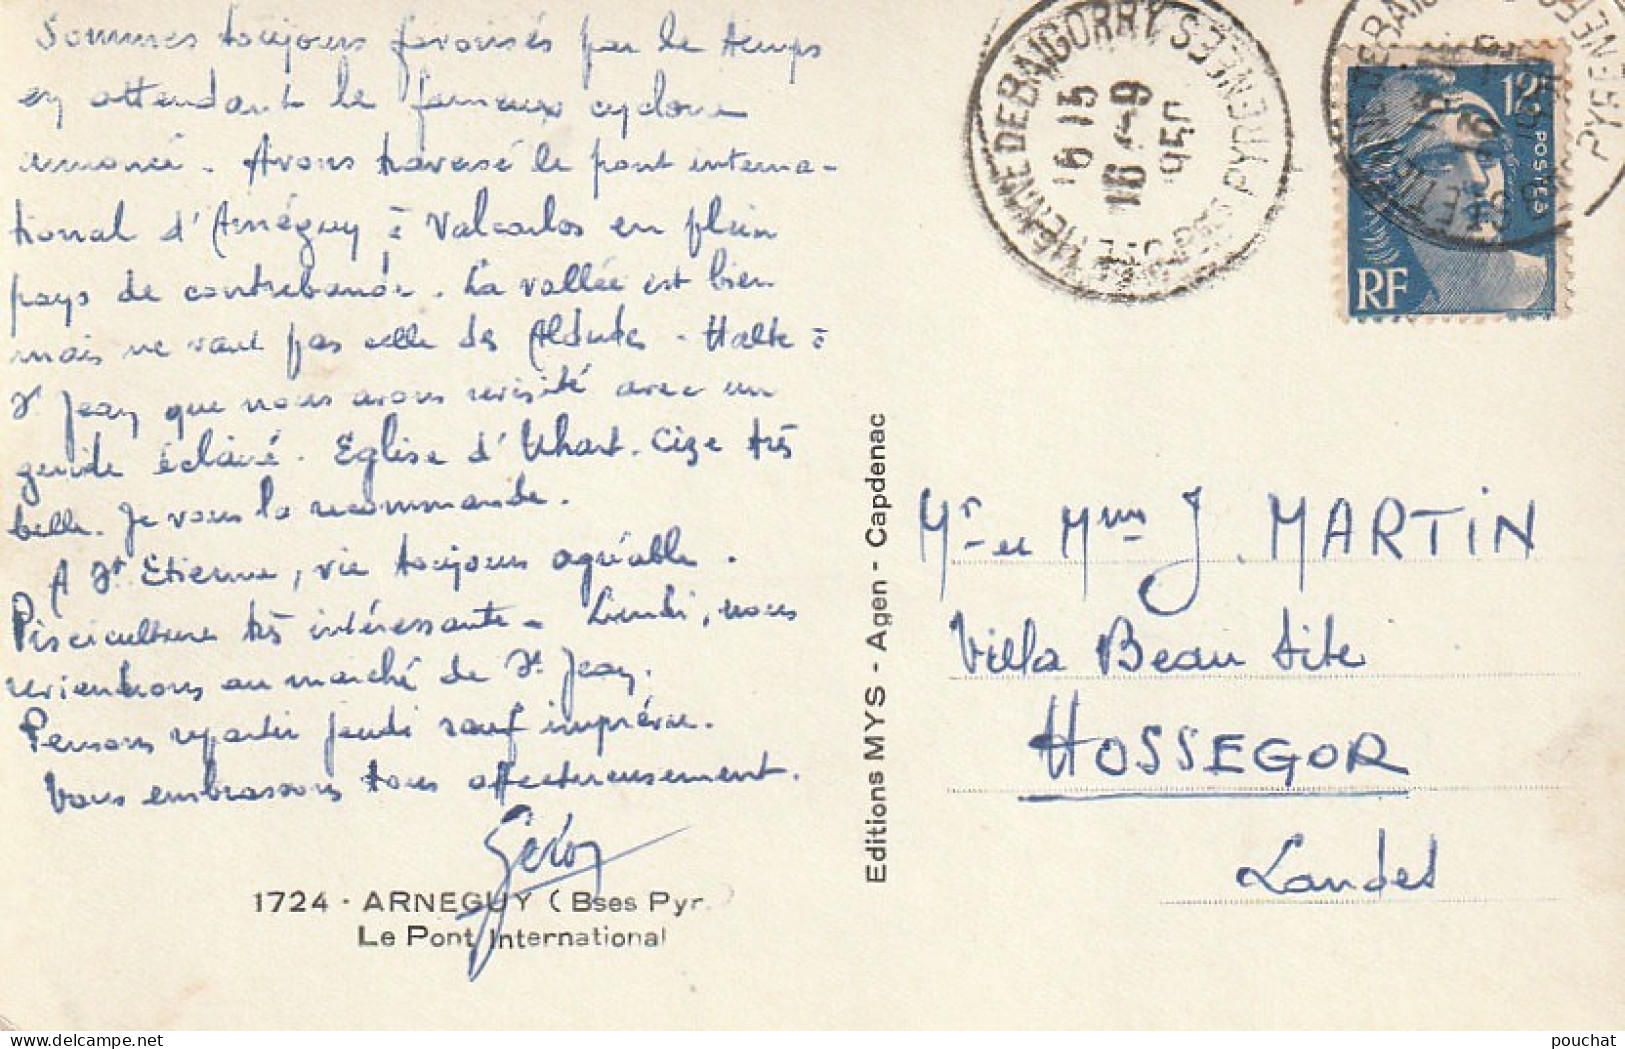 Sommes toujours favorisés par le temps
en attendant le fameux cyclone
annoncé. Avons traversé le pont interna-
tional d'Arnéguy à Valcarlos en plein
pays de contrebande. La vallée est bien
mais ne vaut pas celle des Aldudes - Halte à
St Jean que nous avons revisité avec un
guide éclairé. Eglise d'Uhart-Cize très
belle. Je vous la recommande.
A St Etienne, vie toujours agréable.
Pisciculture très intéressante - Lundi, nous
reviendrons au marché de St Jean.
Pensons repartir jeudi sauf imprévu.
Vous embrassons tous affectueusement.
1724 - ARNEGUY (Bses Pyr.
Le Pont International
Editions MYS - Agen - Capdenac
ETIENNE DE BAIGORRY
BSES PYRENEES
16 15
16 - 9
1950
12F
POSTES
RF
Mr et Mme J. MARTIN
Villa Beau Site
HOSSEGOR
Landes
pouchat